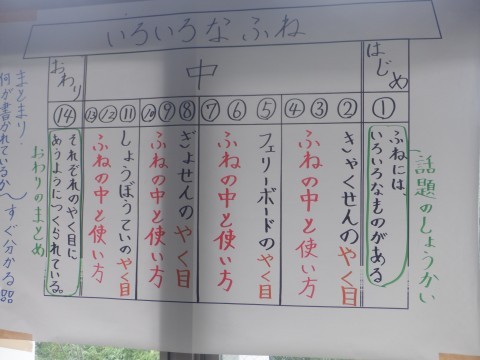 いろいろなふね
はじめ
中
おわり
①
②
③
④
⑤
⑥
⑦
⑧
⑨
⑩
⑪
⑫
⑬
⑭
話題のしょうかい
ふねには、
いろいろなものがある
きゃくせんのやく目
ふねの中と使い方
フェリーボードのやく目
ふねの中と使い方
ぎょせんのやく目
ふねの中と使い方
しょうぼうていのやく目
ふねの中と使い方
それぞれのやく目に
あうようにつくられている。
おわりのまとめ
まとまり・
何が書かれているか〜すぐ分かる